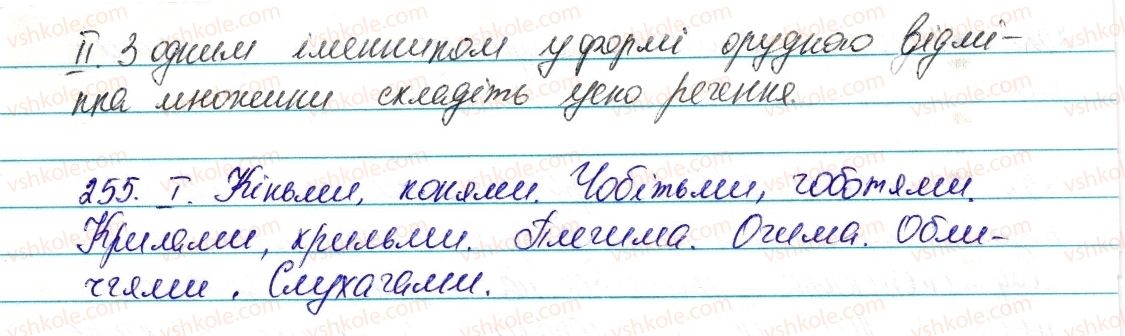 II. З одним іменником у формі орудного відмі-
нка множини складіть усно речення.
255. I. Кіньми, конями. Чобітьми, чоботями.
Крилами, крильми. Плечима. Очима. Обли-
ччями. Слухачами.